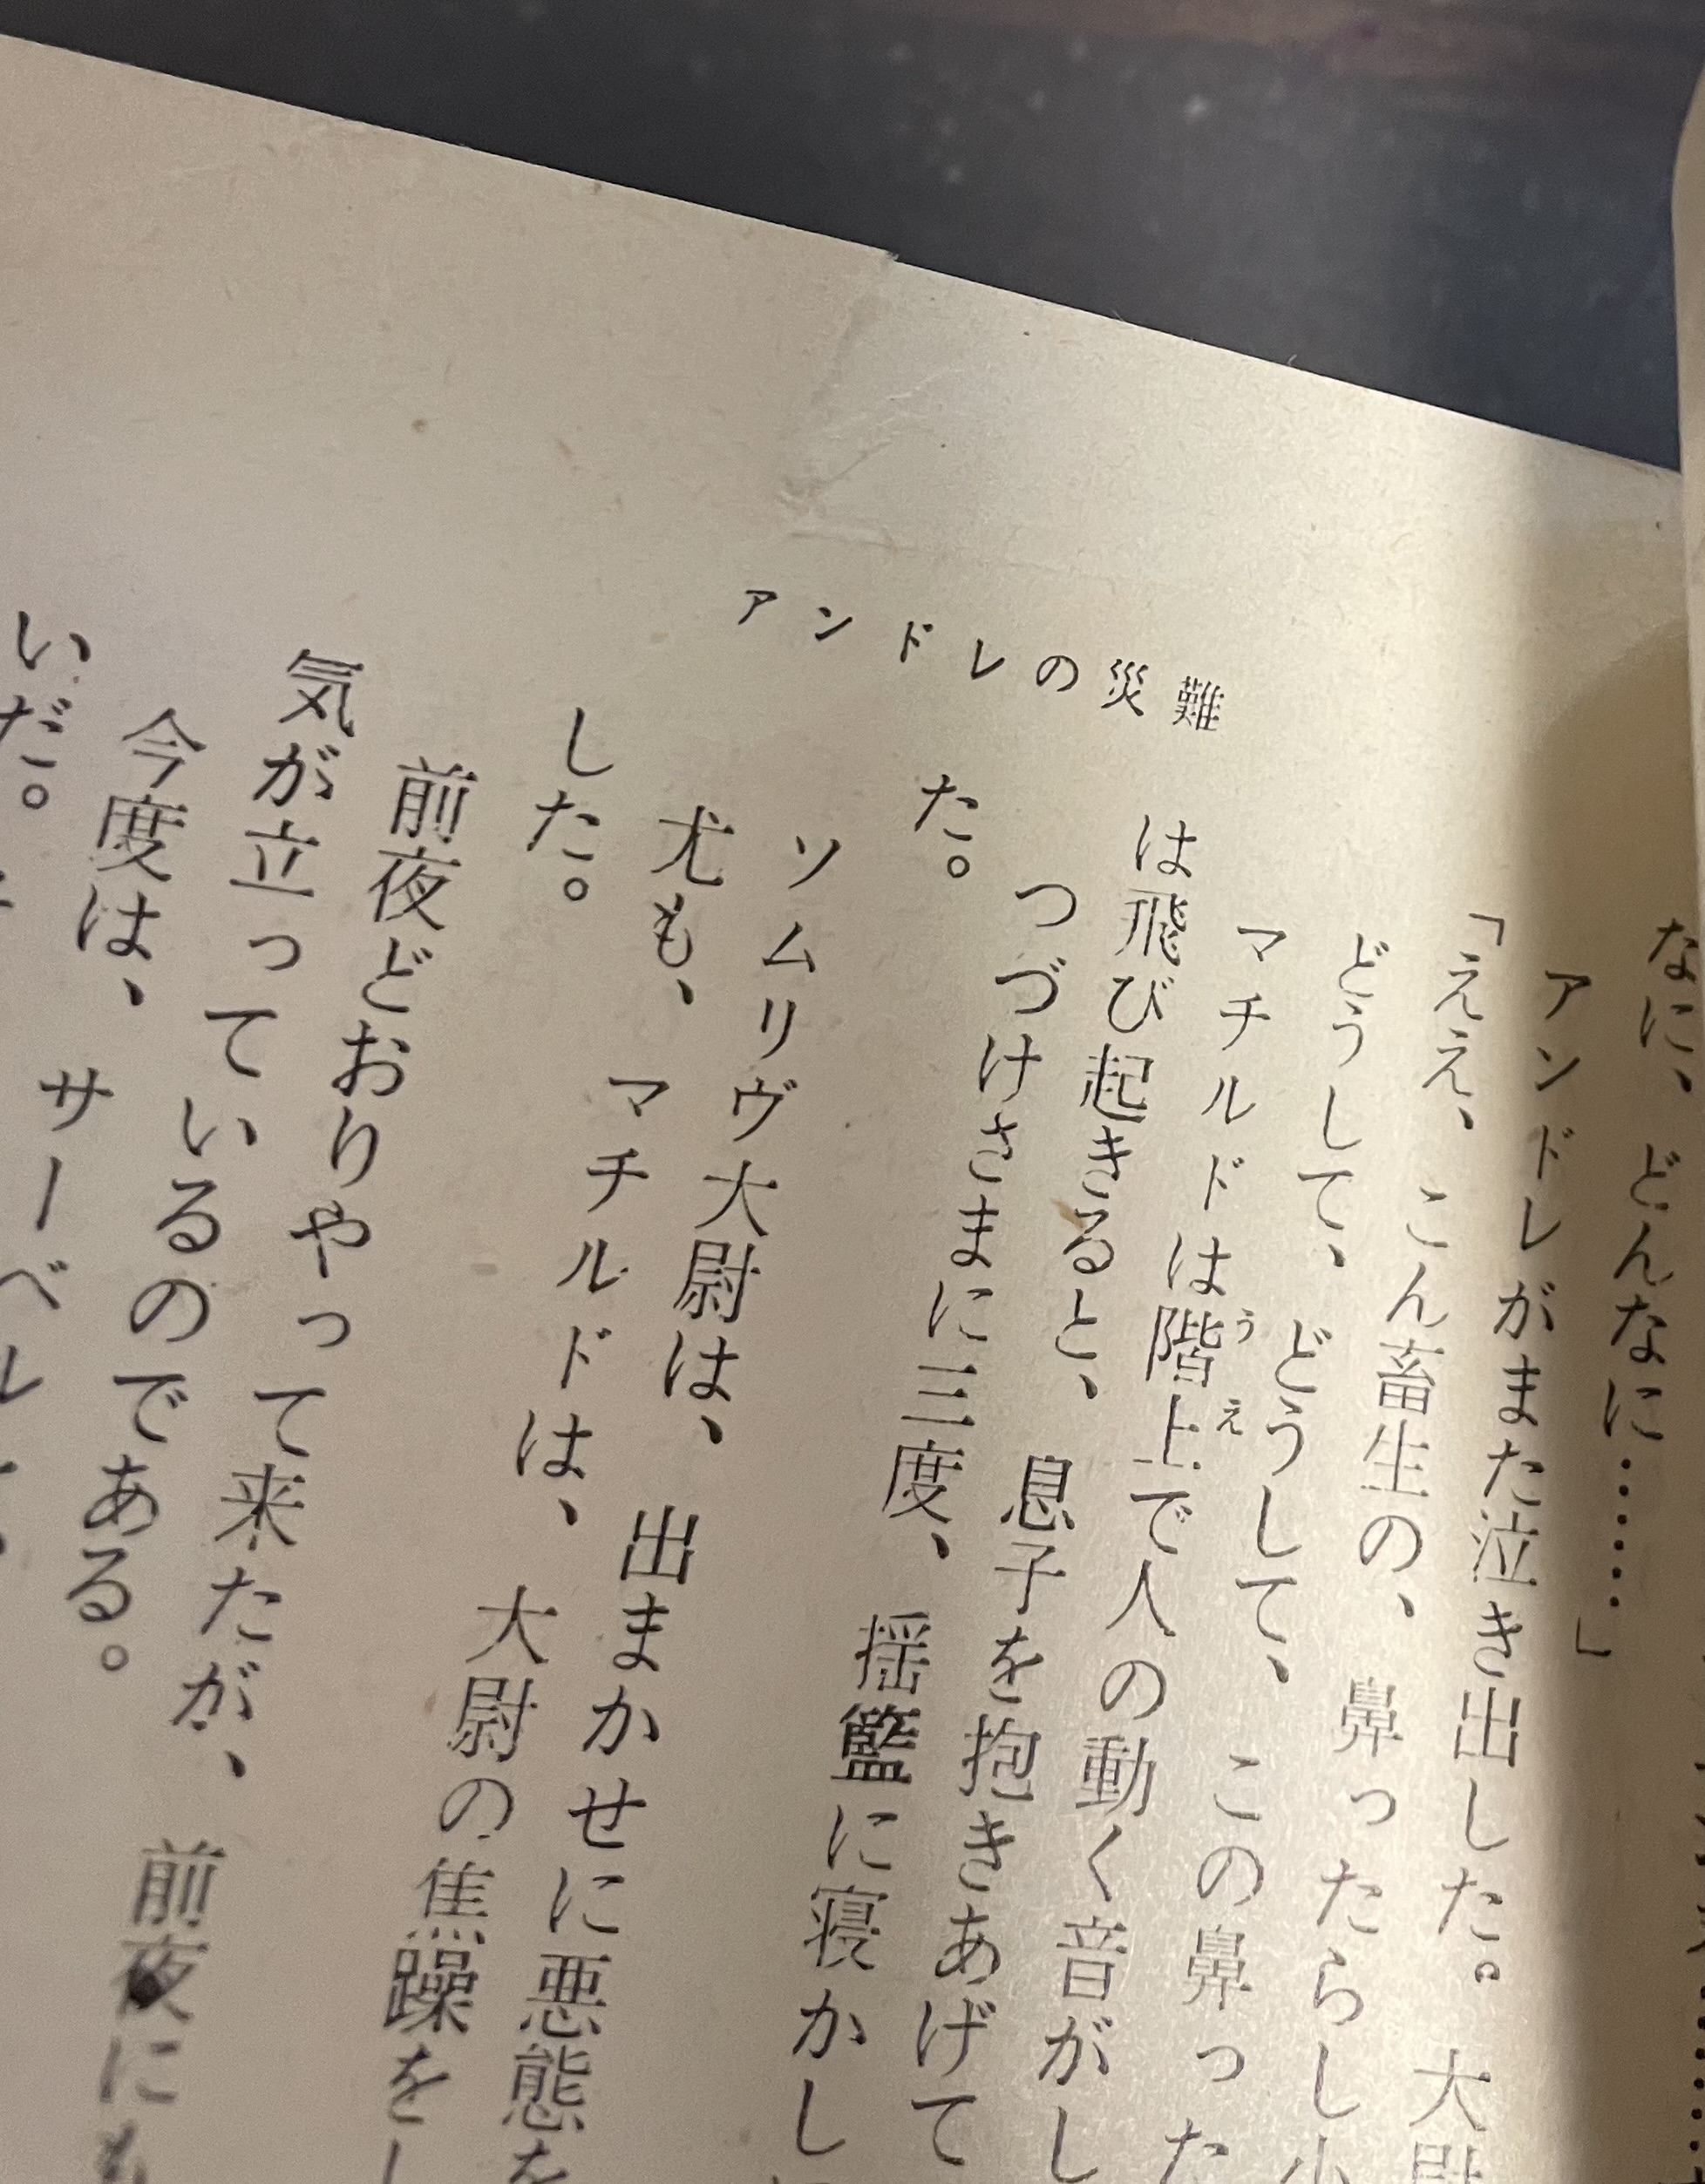 アンドレの災難
なに、どんなに……」
アンドレがまた泣き出した。大尉
「ええ、こん畜生の、鼻ったらし小
どうして、どうして、この鼻った
マチルドは階上で人の動く音がし
うえ
は飛び起きると、息子を抱きあげて
つづけさまに三度、揺籃に寝かし
た。
ソムリヴ大尉は、出まかせに悪態を
尤も、マチルドは、大尉の焦躁をし
した。
前夜どおりやって来たが、前夜にも
気が立っているのである。
今度は、サーベル
いだ。